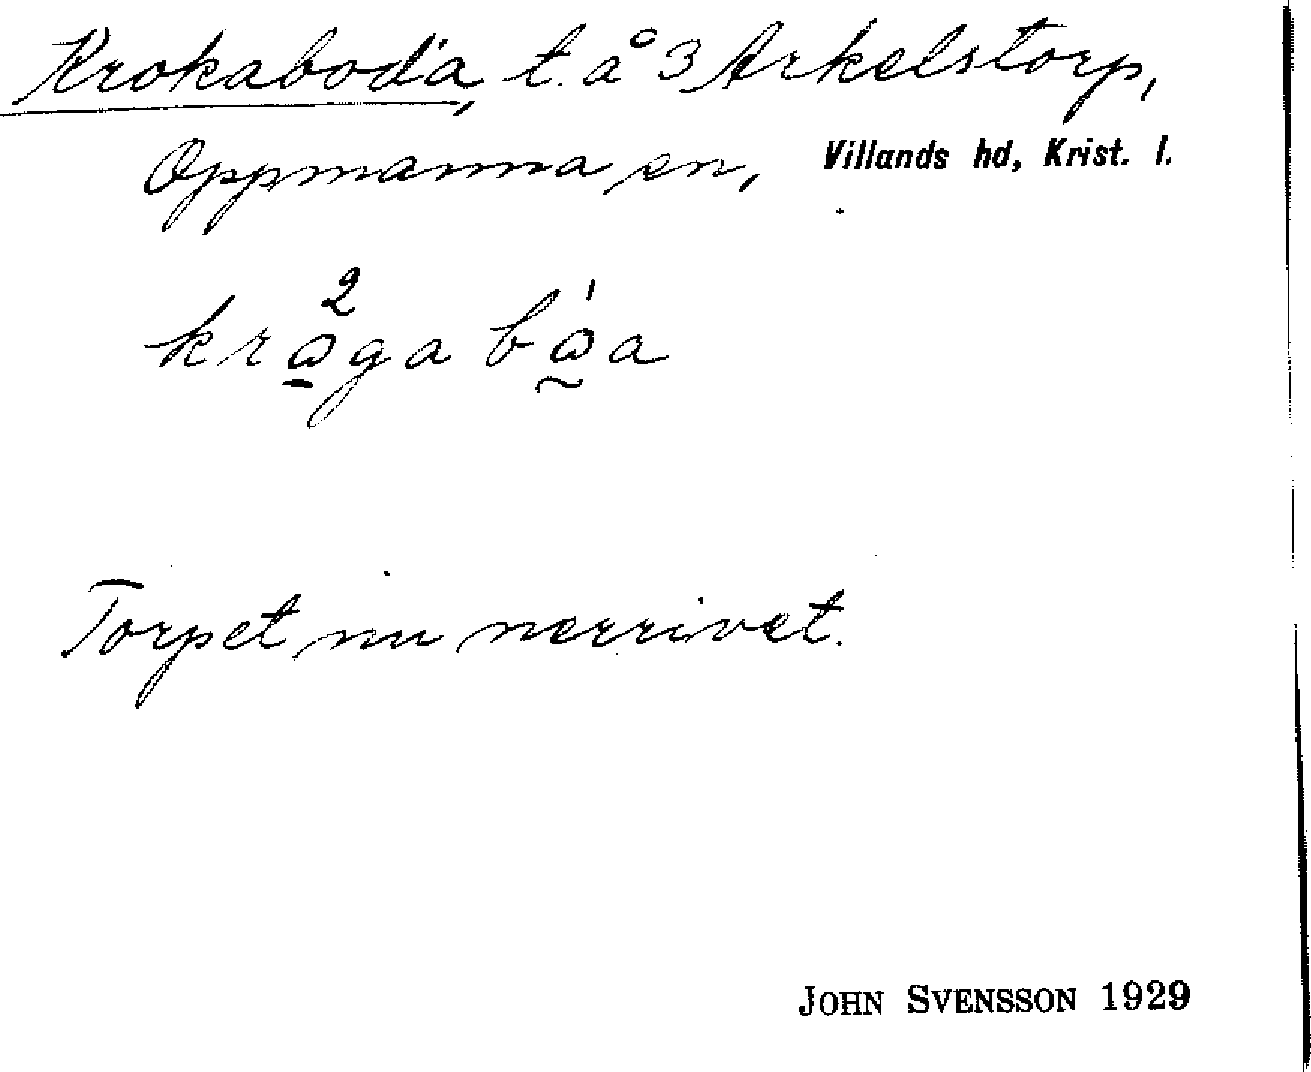 Krokaboda, t. å 3 Arkelstorp,
Oppmanna sn, Villands hd, Krist. l.
Torpet nu nerrivet.
JOHN SVENSSON 1929